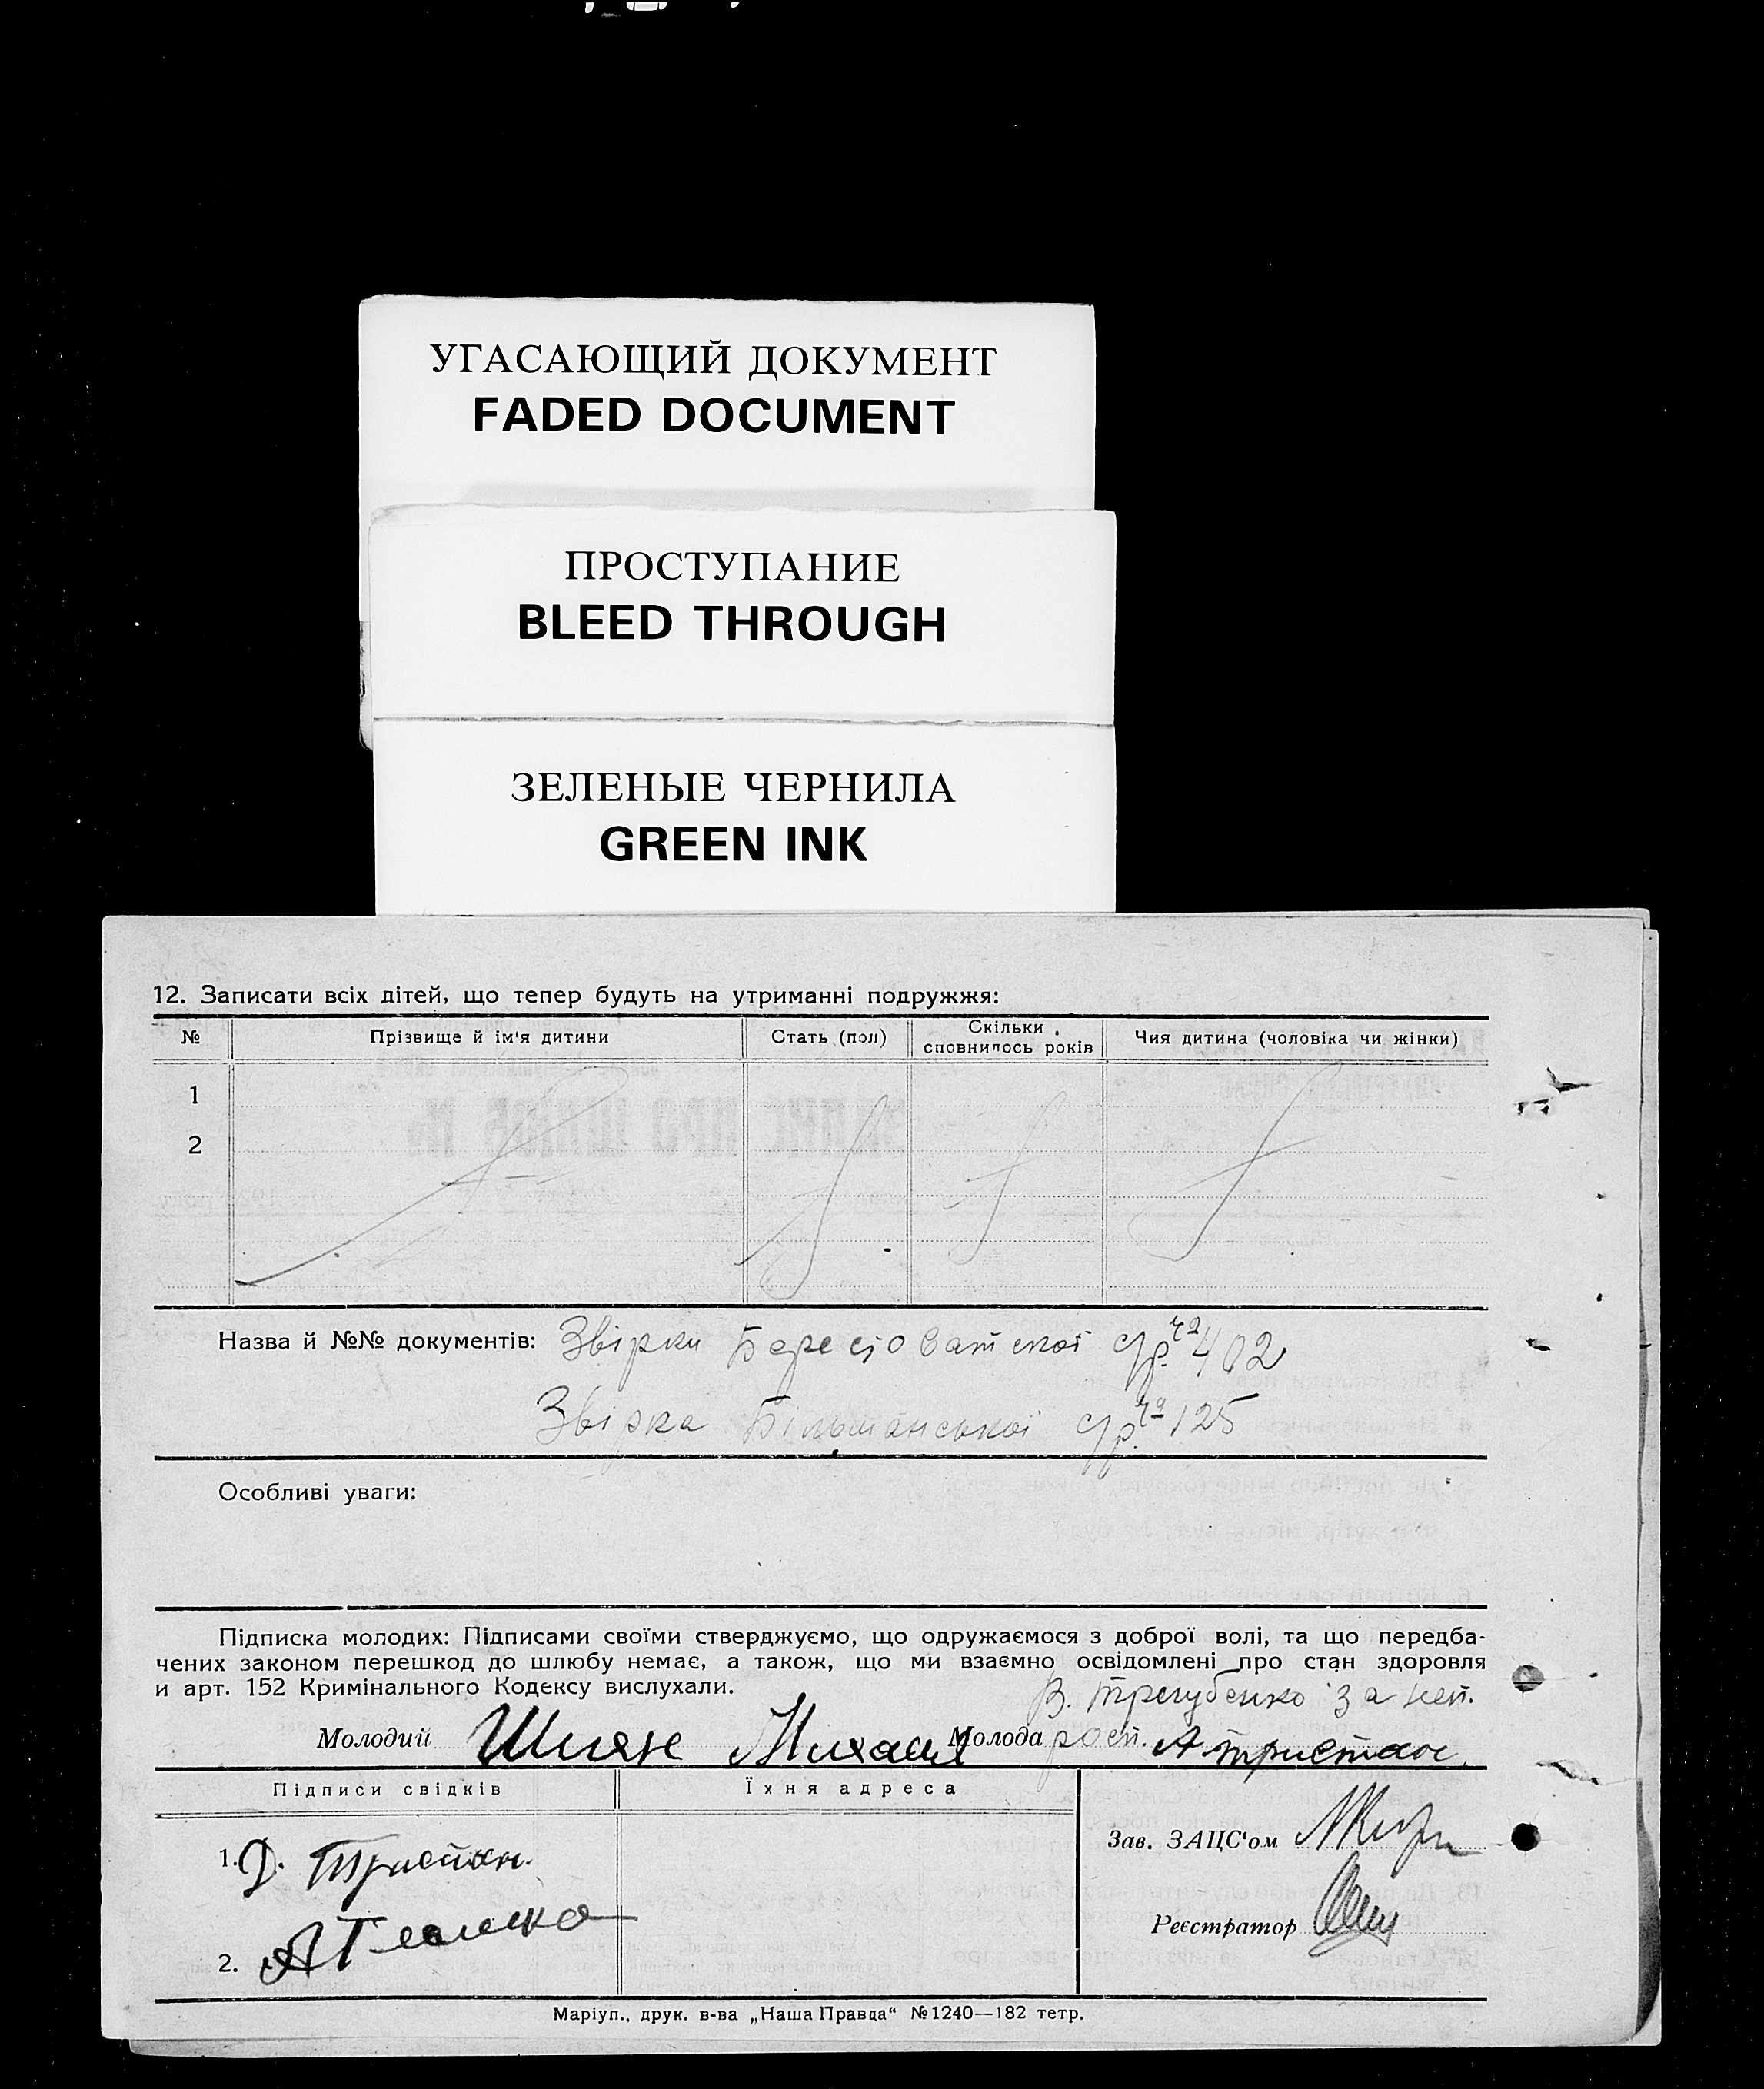 УГАСАЮЩИЙ ДОКУМЕНТ
FADED DOCUMENT
ПРОСТУПАНИЕ
BLEED THROUGH
ЗЕЛЕНЫЕ ЧЕРНИЛА
GREEN INK
12. Записати всіх дітей, що тепер будуть на утриманні подружжя:
№ Прізвище й ім'я дитини Стать (пол) Скільки сповнилось років Чия дитина (чоловіка чи жінки)
1
2
Назва й №№ документів: Звірки 402
Звірка Більманської 125
Особливі уваги:
Підписка молодих: Підписами своїми стверджуємо, що одружаємося з доброї волі, та що передба-
чених законом перешкод до шлюбу немає, а також, що ми взаємно освідомлені про стан здоровля
и арт. 152 Кримінального Кодексу вислухали.
В. Трегубенко за неп.
Молодий Шиян Михаил Молода росп. А Тристан
Підписи свідків Їхня адреса
1. Д. Тристан
Зав. ЗАЦС‘ом
Реєстратор
2.
Маріуп., друк. в-ва „Наша Правда“ №1240—182 тетр.